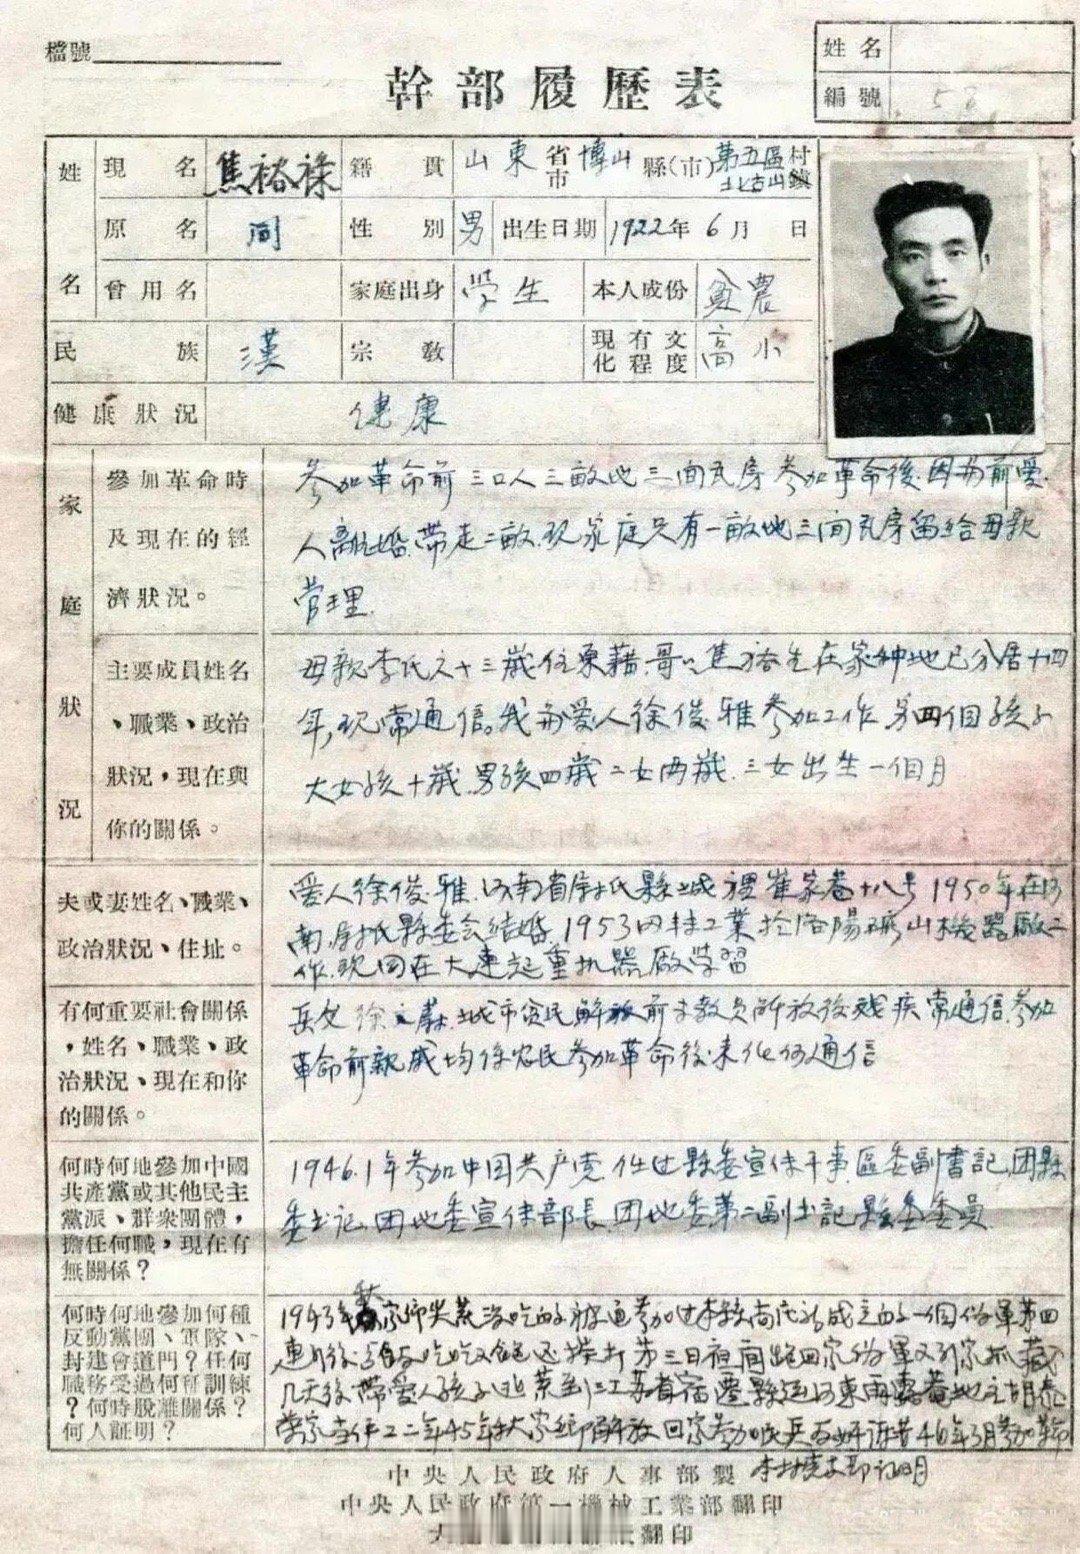 檔號
幹部履歷表
姓名
編號 53
姓名 現名 焦裕祿 籍貫 山東省市 博山縣(市) 第五區北崮山村鎮
原名 同 性別 男 出生日期 1922年6月 日
曾用名 家庭出身 学生 本人成份 貧農
民族 漢 宗教 現有文化程度 高小
健康狀況 健康
家庭狀況
參加革命時及現在的經濟狀況。
参加革命前三口人三畝地三间瓦房参加革命後因为前爱
人離婚帶走二畝.现家庭只有一畝地三间瓦房留给母親
管理.
主要成員姓名、職業、政治狀況,現在與你的關係。
母親李氏六十三歲住原籍.哥哥焦裕生在家种地已分居十四
年,现常通信。我和爱人徐俊雅参加工作.另四個孩子
大女孩十歲.男孩四歲二女两歲.三女出生一個月
夫或妻姓名、職業、政治狀況、住址。
爱人徐俊雅.河南省尉氏縣城裡崔家巷十八号1950年在河
南尉氏縣委会結婚1953 工業於洛陽礦山機器廠工
作.现同在大連起重机器廠学習
有何重要社會關係,姓名、職業、政治狀況、現在和你的關係。
岳父徐 城市贫民解放前 教員解放後残疾常通信.参加
革命前親戚均係农民参加革命後未 通信
何時何地參加中國共產黨或其他民主黨派、群衆團體,擔任何職,現在有無關係?
1946.1年参加中国共产党.任过縣委宣传干事.區委副書記.团縣
委书记.团地委宣传部長.团地委第二副书記縣委委員
何時何地參加何種反動黨團、軍隊、封建會道門?任何職務受過何種訓練?何時脫離關係?何人証明?
1943年 家 荒没吃的被逼参加过本縣 成立的一個伪軍第四
連 吃 饱还挨打第三日夜间跑回家伪軍又到家抓藏
几天後帶爱人孩子逃荒至江苏省宿遷縣 地主胡
家 工二年45年 家鄉解放回家参加民兵 46年3月参加革命
本村 支部 証明
中央人民政府人事部製
中央人民政府第一機械工業部翻印
翻印